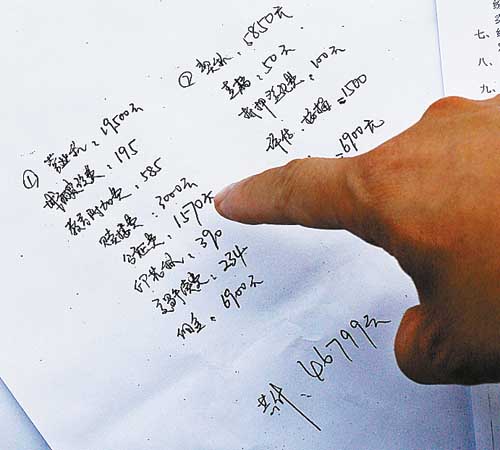 ① 营业税:19500元
城市建设费:195
教育附加费:585
赎楼费:3000元
公证费:1570元
印花税:390
交易手续费:234
佣金:6900元
② 契税:5850元
查档:50元
抵押登记费:100元
评估、按揭:1500
6900元
共计:46799元
七、
八、
九、